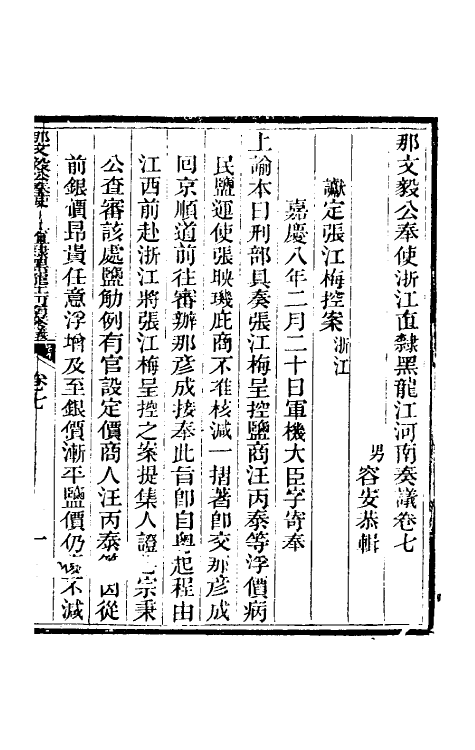 那文毅公奉使浙江直隸黑龍江河南奏議卷七
男容安恭輯
讞定張江梅控案浙江
嘉慶八年二月二十日軍機大臣字寄奉
上諭本日刑部具奏張江梅呈控鹽商汪丙泰等浮價病
民鹽運使張映璣庇商不准核減一摺著卽交那彥成
回京順道前往審辦那彥成接奉此旨卽自粵起程由
江西前赴浙江將張江梅呈控之案提集人證宗秉
公查審該處鹽觔例有官設定價商人汪丙泰因從
前銀價昂貴任意浮增及至銀價漸平鹽價仍不減
卷七
一